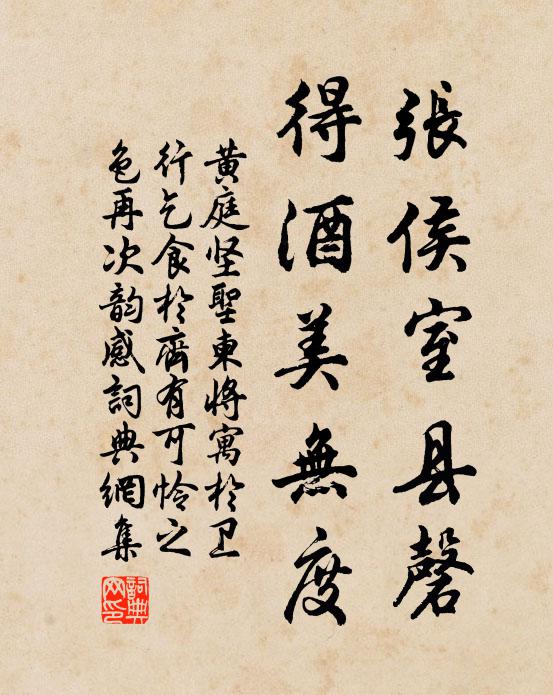 張侯室县磬
得酒美無度
黄庭坚聖東將寓於卫
行乞食於齊有可怜之
色再次韵感詞典網集
詞典网印